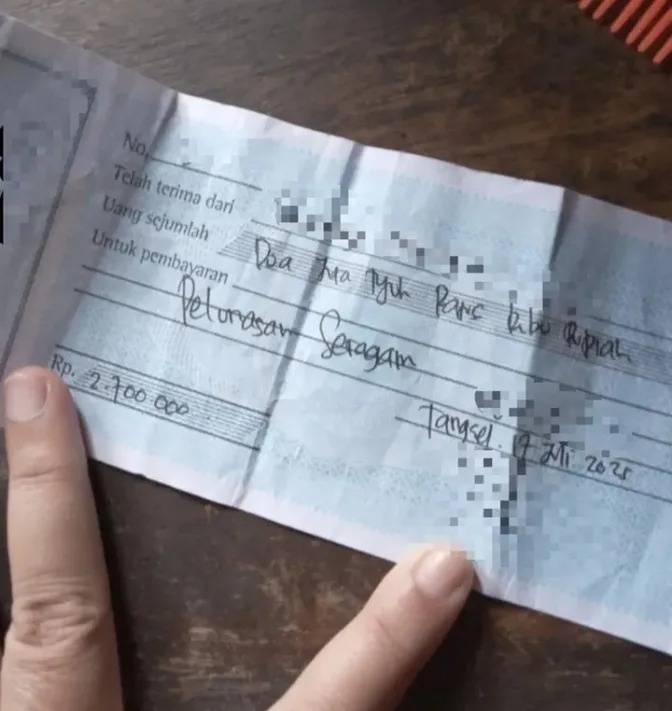 No.
Telah terima dari
Uang sejumlah Dua Juta Tujuh Ratus Ribu Rupiah
Untuk pembayaran Pelunasan Seragam
Rp. 2.700 000
Tangsel. 17 Juli 2025